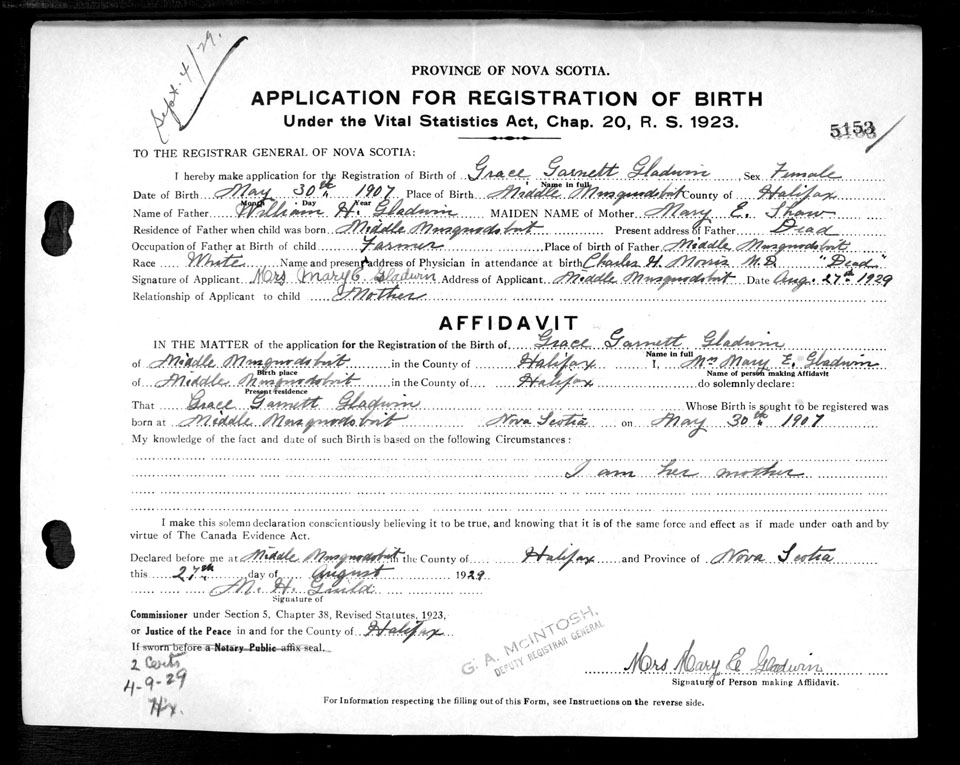 Sept. 4/29.
PROVINCE OF NOVA SCOTIA.
APPLICATION FOR REGISTRATION OF BIRTH
Under the Vital Statistics Act, Chap. 20, R. S. 1923.
5153
TO THE REGISTRAR GENERAL OF NOVA SCOTIA:
I hereby make application for the Registration of Birth of Grace Garnett Gladwin Sex Female
Name in full
Date of Birth May 30th 1907 Place of Birth Middle Musquodobit County of Halifax
Month Day Year
Name of Father William H. Gladwin MAIDEN NAME of Mother Mary E. Shaw
Residence of Father when child was born Middle Musquodobit Present address of Father Dead
Occupation of Father at Birth of child Farmer Place of birth of Father Middle Musquodobit
Race White Name and present address of Physician in attendance at birth Charles H. Morris M.D. "Dead"
Signature of Applicant Mrs Mary E Gladwin Address of Applicant Middle Musquodobit Date Aug. 27th 1929
Relationship of Applicant to child Mother
AFFIDAVIT
IN THE MATTER of the application for the Registration of the Birth of Grace Garnett Gladwin
Name in full
of Middle Musquodobit in the County of Halifax I, Mrs Mary E. Gladwin
Birth place Name of person making Affidavit
of Middle Musquodobit in the County of Halifax do solemnly declare:
Present residence
That Grace Garnett Gladwin Whose Birth is sought to be registered was
born at Middle Musquodobit Nova Scotia on May 30th 1907
My knowledge of the fact and date of such Birth is based on the following Circumstances:
I am her mother
I make this solemn declaration conscientiously believing it to be true, and knowing that it is of the same force and effect as if made under oath and by
virtue of The Canada Evidence Act.
Declared before me at Middle Musquodobit in the County of Halifax and Province of Nova Scotia
this 27th day of August 1929
M. H. Gauld
Signature of
Commissioner under Section 5, Chapter 38, Revised Statutes, 1923,
or Justice of the Peace in and for the County of Halifax
If sworn before a Notary Public affix seal.
G. A. McINTOSH,
DEPUTY REGISTRAR GENERAL
2 Certs
4-9-29
Hx.
Mrs Mary E Gladwin
Signature of Person making Affidavit.
For Information respecting the filling out of this Form, see Instructions on the reverse side.